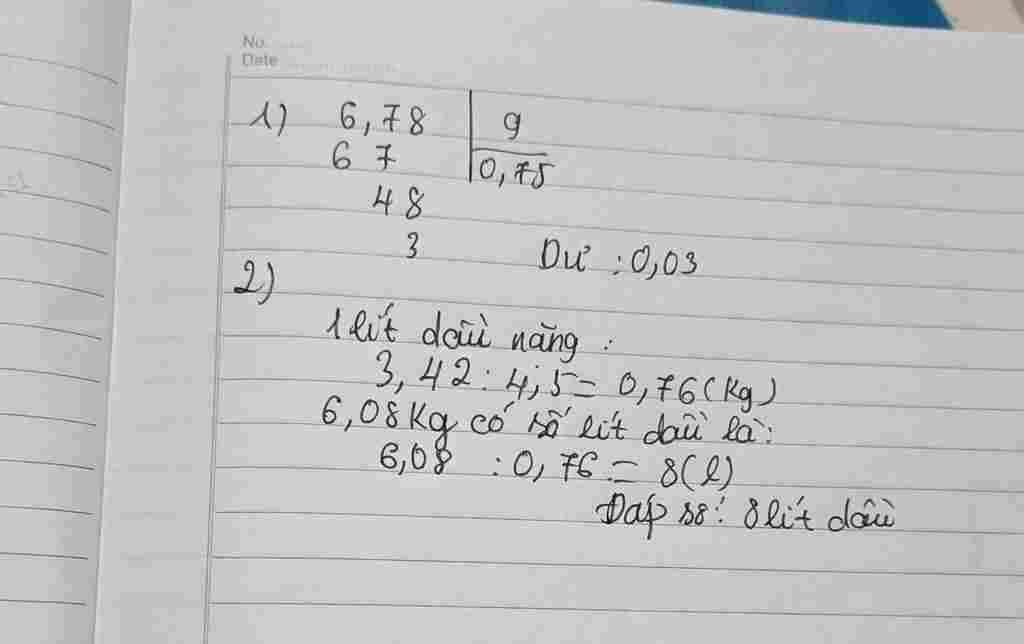 No.
Date
1) 6,78 9
6 7 0,75
48
3 Dư : 0,03
2)
1 lít dầu nặng :
3,42 : 4,5 = 0,76 (Kg)
6,08 Kg có số lít dầu là:
6,08 : 0,76 = 8 (l)
Đáp số: 8 lít dầu